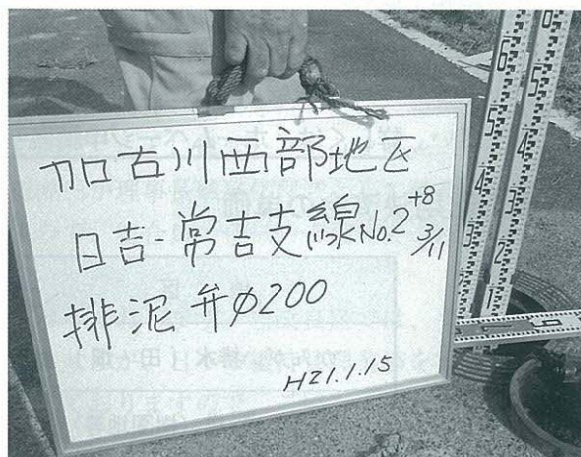 加古川西部地区
日吉-常吉支線No.2+8 3/11
排泥弁φ200
H21.1.15